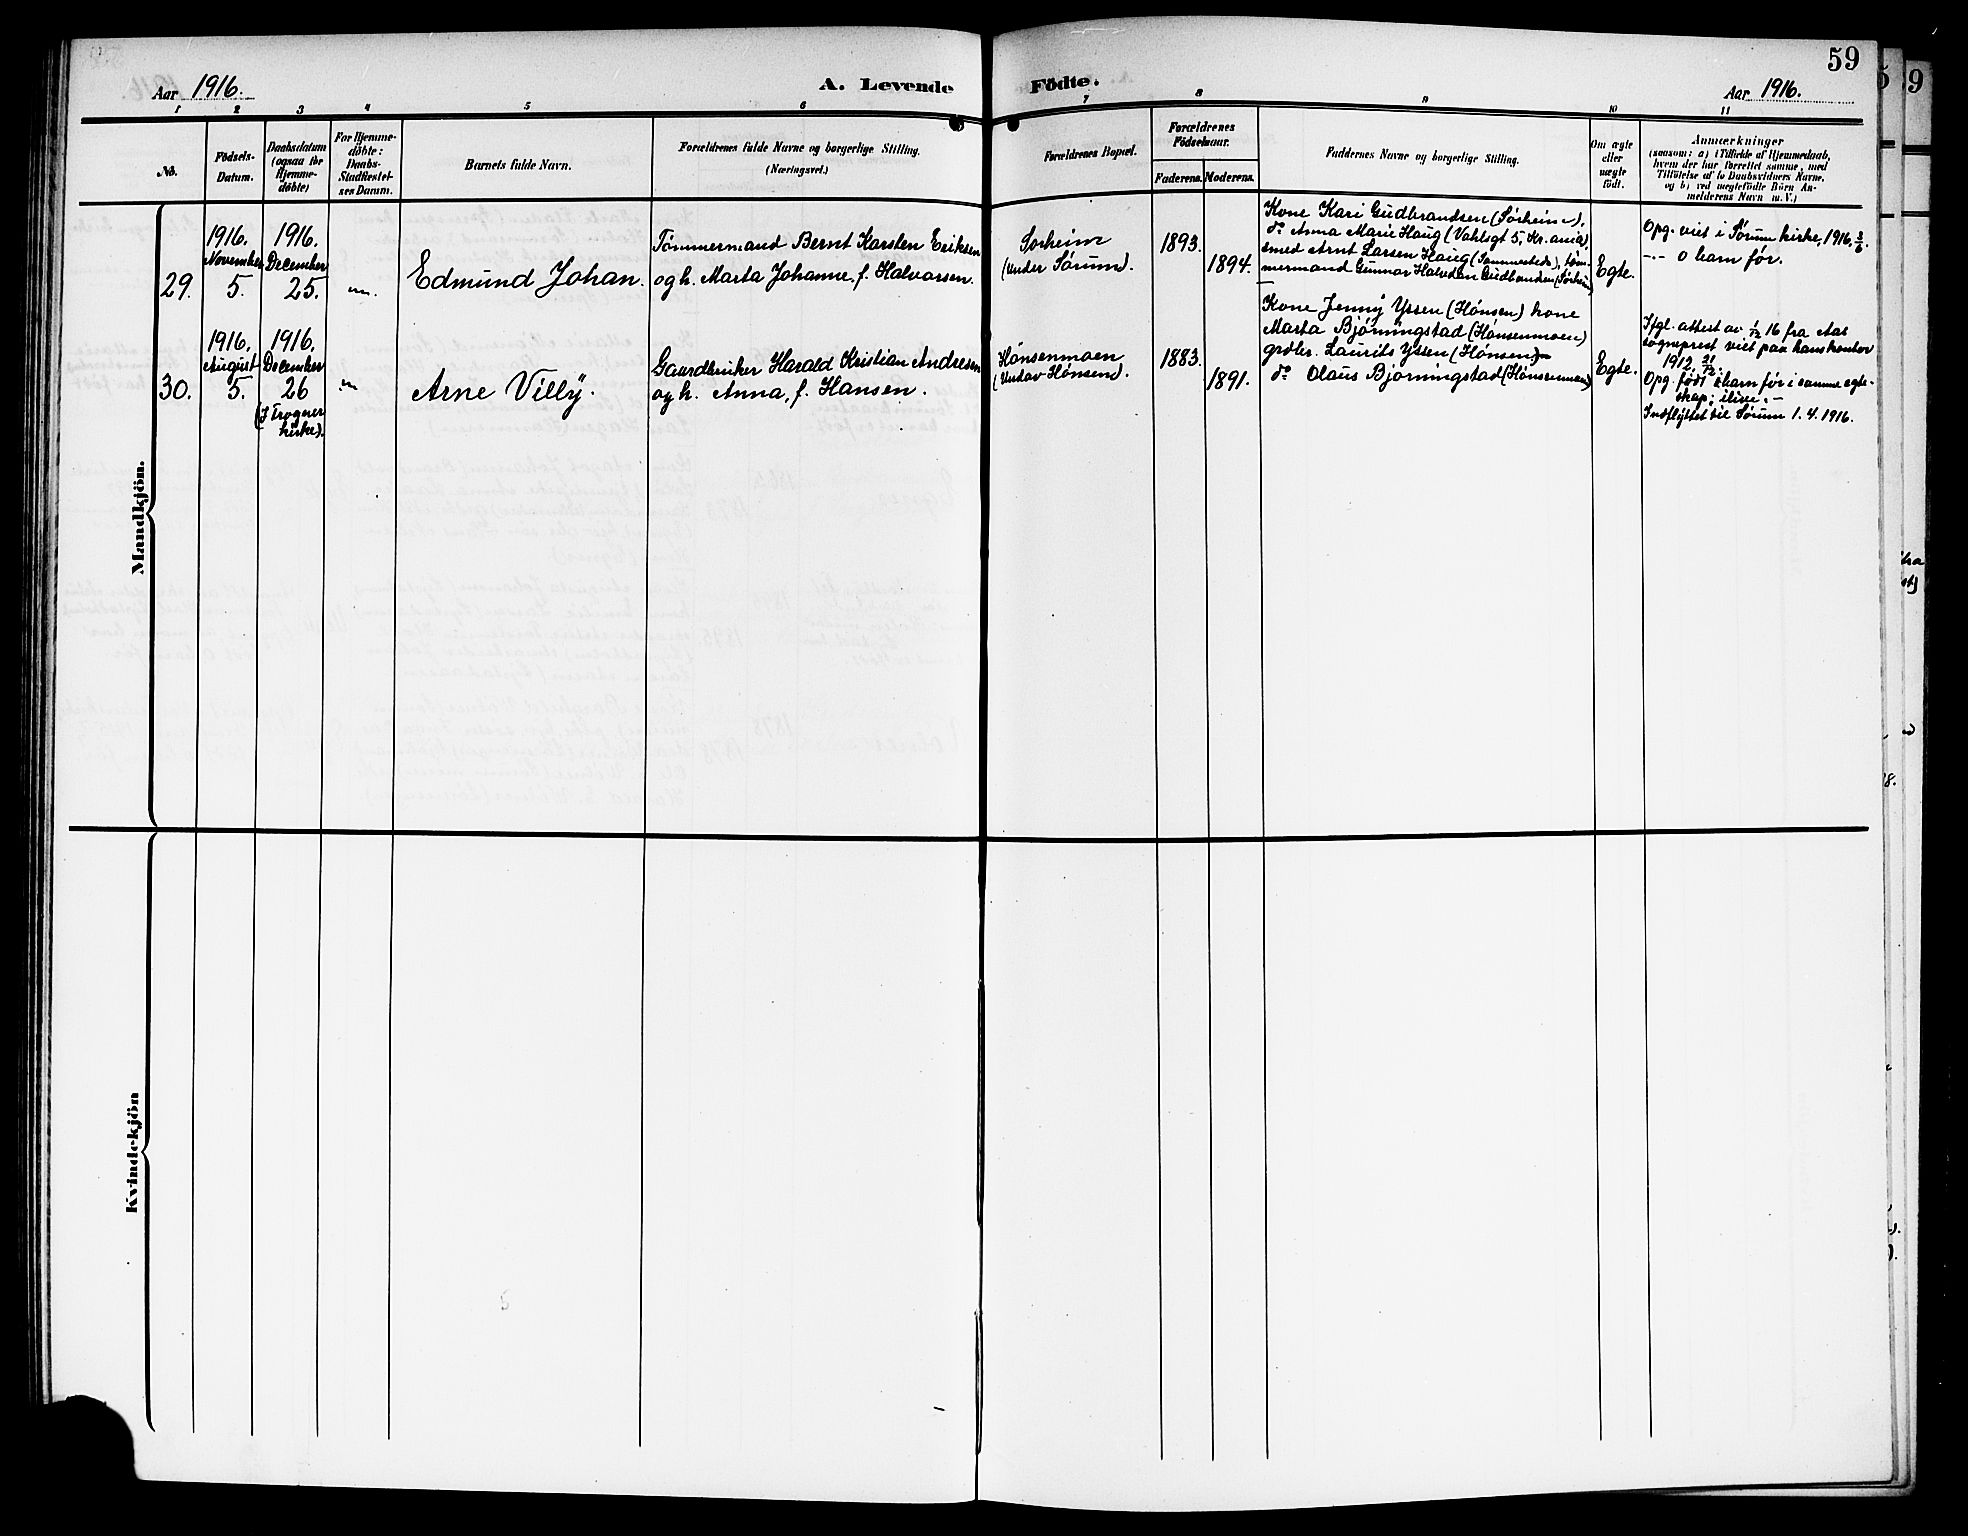 59
Aar 1916.
A. Levende Födte.
Aar 1916.
1 2 3 4 5 6 7 8 9 10 11
No.
Födsels-
Datum.
Daabsdatum
(ogsaa for
Hjemme-
döbte)
For Hjemme-
döbte:
Daabs-
Stadfæstel-
ses Datum.
Barnets fulde Navn.
Forældrenes fulde Navne og borgerlige Stilling.
(Næringsvei.)
Forældrenes Bopæl.
Forældrenes
Födselsaar.
Faderens. Moderens.
Faddernes Navne og borgerlige Stilling.
Om ægte
eller
uægte
födt.
Anmærkninger
(saasom: a) i Tilfælde af Hjemmedaab,
hvem der har forrettet samme, med
Tilföielse af to Daabsvidners Navne,
og b) ved uægtefödte Börn An-
melderens Navn m. V.)
Mandkjön.
29.
1916.
November
5.
1916.
December
25.
Edmund Johan.
Tømmermand Bernt Karsten Eriksen
og h. Marta Johanne, f. Halvorsen.
Sørheim
(under Sørum).
1893.
1894.
Kone Kari Gudbrandsen (Sørheim),
do Anna Marie Haug (Vahlsgt 5, Kr.ania),
smed Arnt Larsen Haug (sammesteds), tøm-
mermand Gunnar Halvdan Gudbrandsen (Sørheim)
Egte.
Opg. viet i Sørum kirke, 1916
0 barn før.
30.
1916.
August
5.
1916.
December
26
(I Frogner
kirke).
Arne Villy.
Gaardbruker Harald Kristian Andresen
og h. Anna, f. Hansen.
Hønsenmoen
(Under Hønsen).
1883.
1891.
Kone Jenny Yssen (Hønsen) kone
Marta Bjørningstad (Hønsenmoen)
grdbr. Laurits Yssen (Hønsen)
do Olaus Bjørningstad (Hønsenmoen)
Egte.
Ifgl. attest av 1/12 16 fra Aas
sogneprest viet paa hans kontor
1912
Opg. født barn før i samme egte-
skap; ilive.
Indflyttet til Sørum 1. 4. 1916.
Kvindekjön